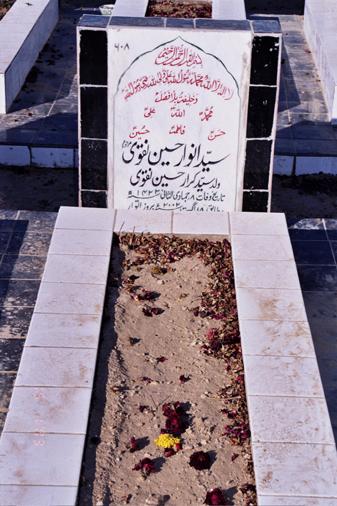 ۴۰۸
بسم اللہ الرحمن الرحیم
لا الہ الا اللہ محمد رسول اللہ علی ولی اللہ وصی رسول اللہ
وخلیفتہ بلا فصل
محمدؐ اللہ علیؑ
حسنؑ فاطمہؑ حسینؑ
سید انوار حسین نقوی
ولد سید کرار حسین نقوی
تاریخ وفات ۸ جمادی الثانی ۱۴۲۳ھ
مطابق ۱۸ اگست ۲۰۰۲ء بروز اتوار